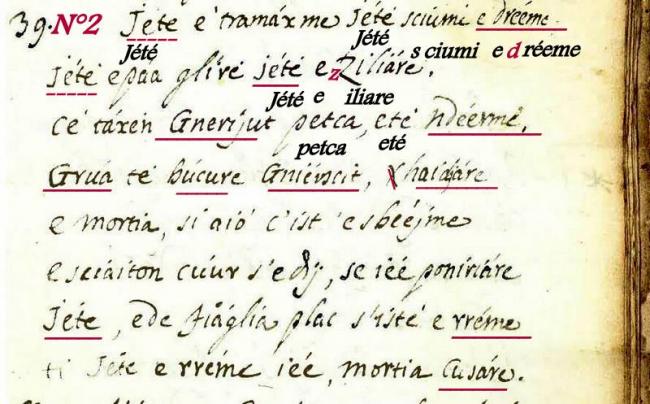 39. N°2 Jéte e'tramáxme Jéte sciumi e dréeme
Jété Jété sciumi e dréeme
Jéte e paa glire jéte e Ziliáre.
z
Jété e iliare
Cé táxen Gnerijut petca, eté ndéerme,
petca eté
Grua te búcure Gniévscit, haidjáre
e mortia, si aió c'ist 'esbééjme
e sciaiton cuur s'e dij, se ieé poniriáre
Jéte, ede fiáglia plac s'isté e rréme
ti Jéte e rréme ieé, mortia Cusáre.